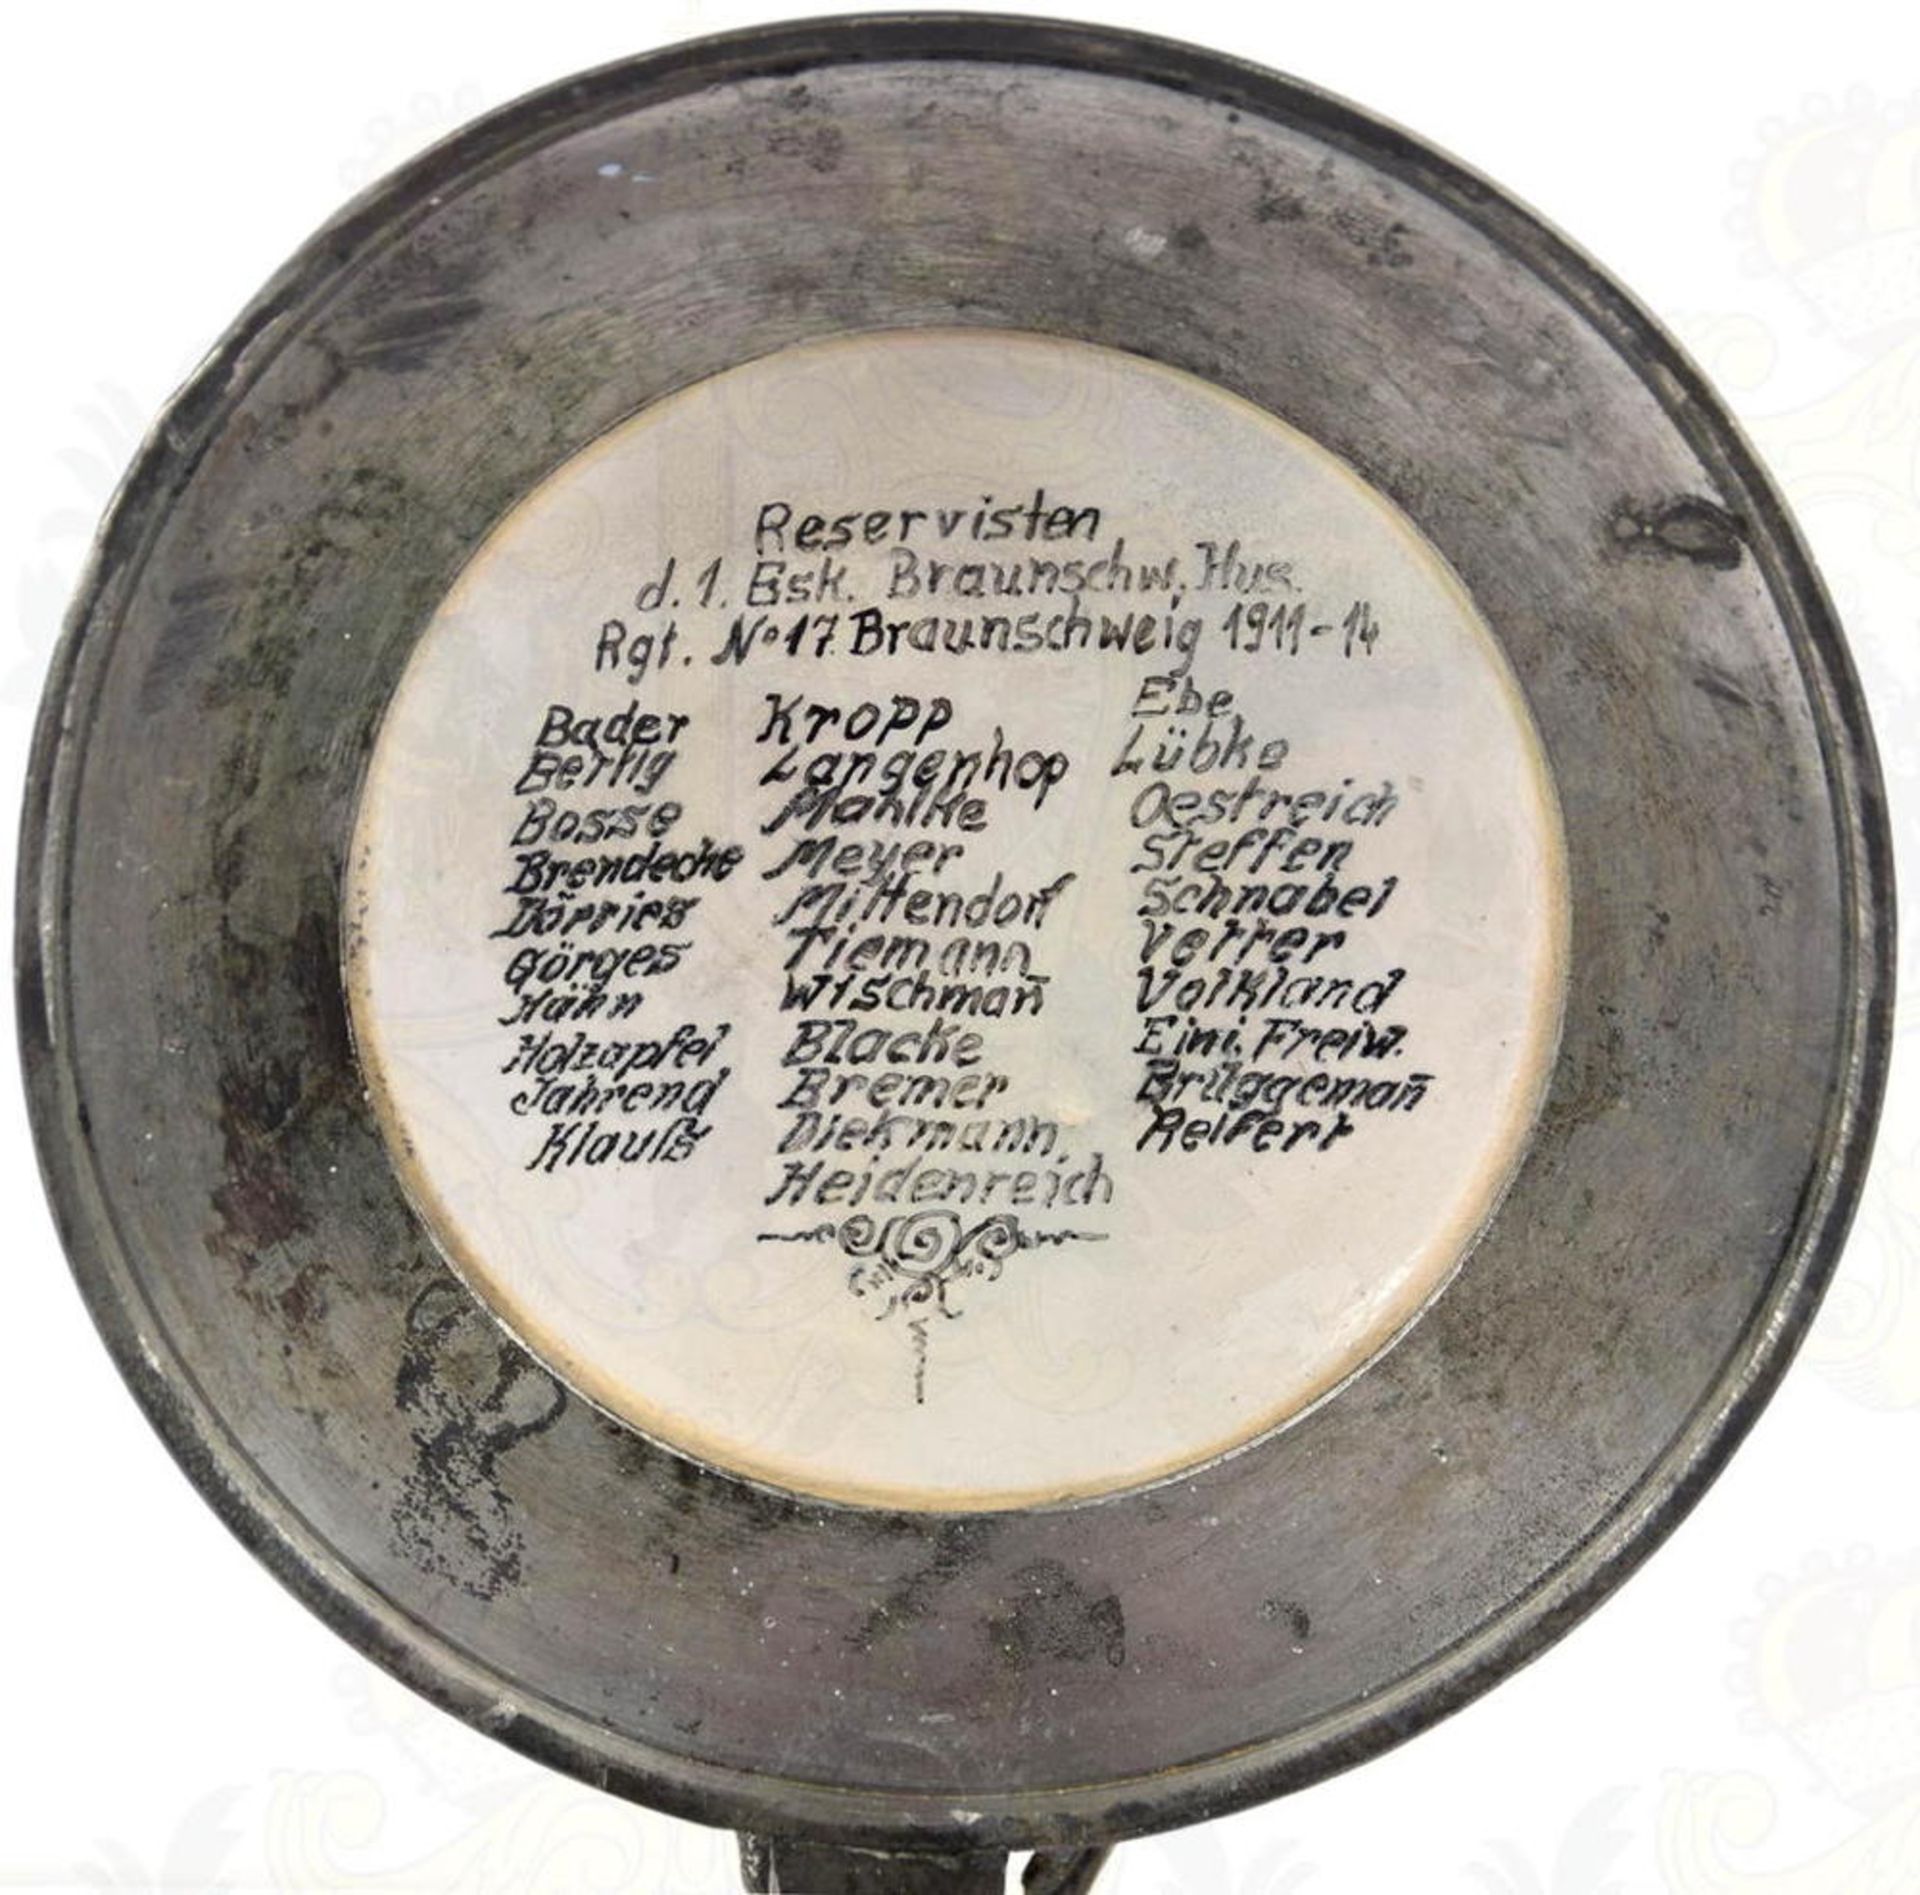 Reservisten
d. 1. Esk. Braunschw. Hus.
Rgt. No 17 Braunschweig 1911-14
Bader
Bertig
Bosse
Brendecke
Dörries
Görges
Hähn
Holzapfel
Jahrend
Klauß
Kropp
Langenhop
Mahlke
Meyer
Mittendorf
Tiemann
Wischman̄
Blacke
Bremer
Diekmann
Heidenreich
Ebe
Lübke
Oestreich
Steffen
Schnabel
Vetter
Volkland
Einj. Freiw.
Brüggeman̄
Reifert